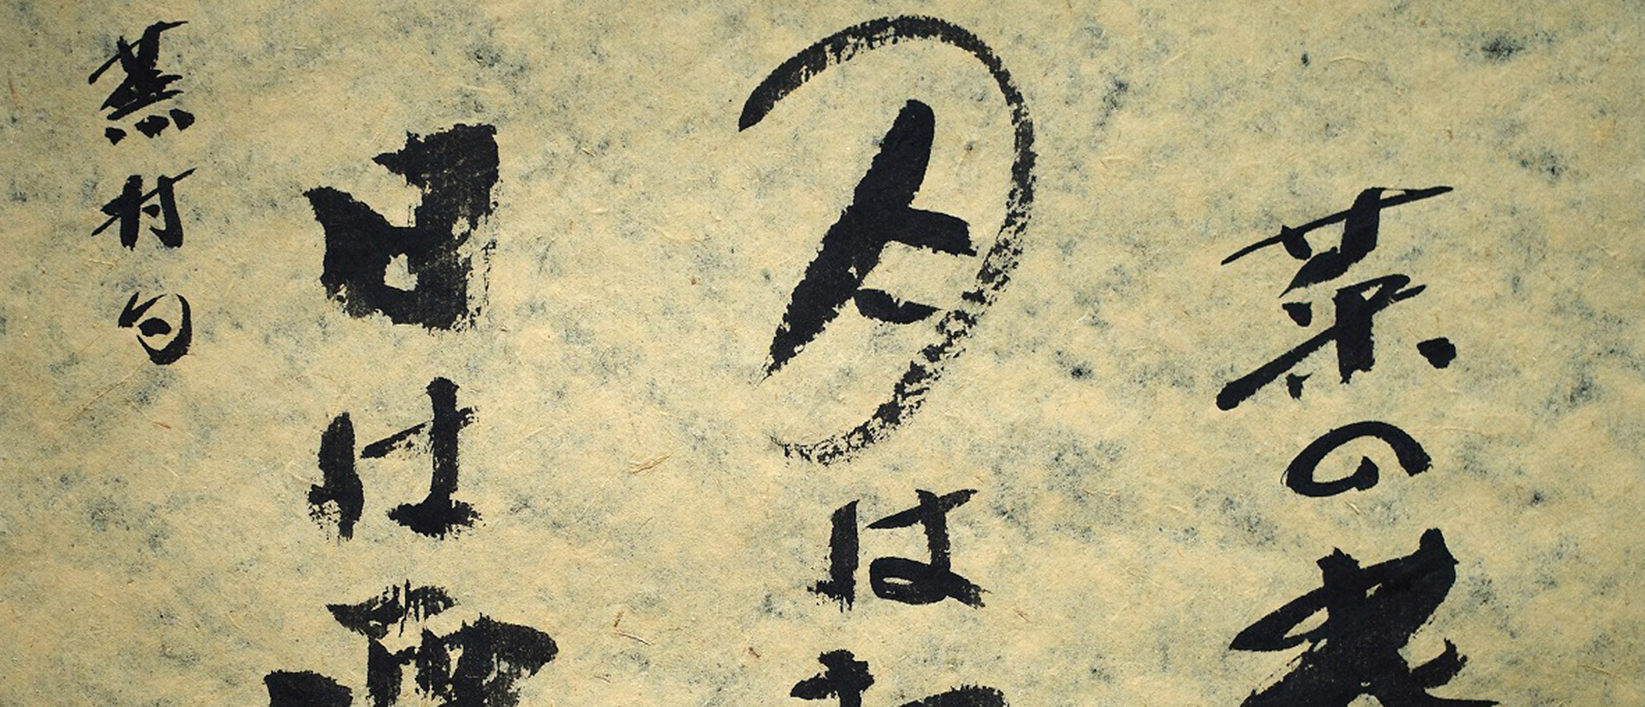 菜の花
月は
日は
蕪村句